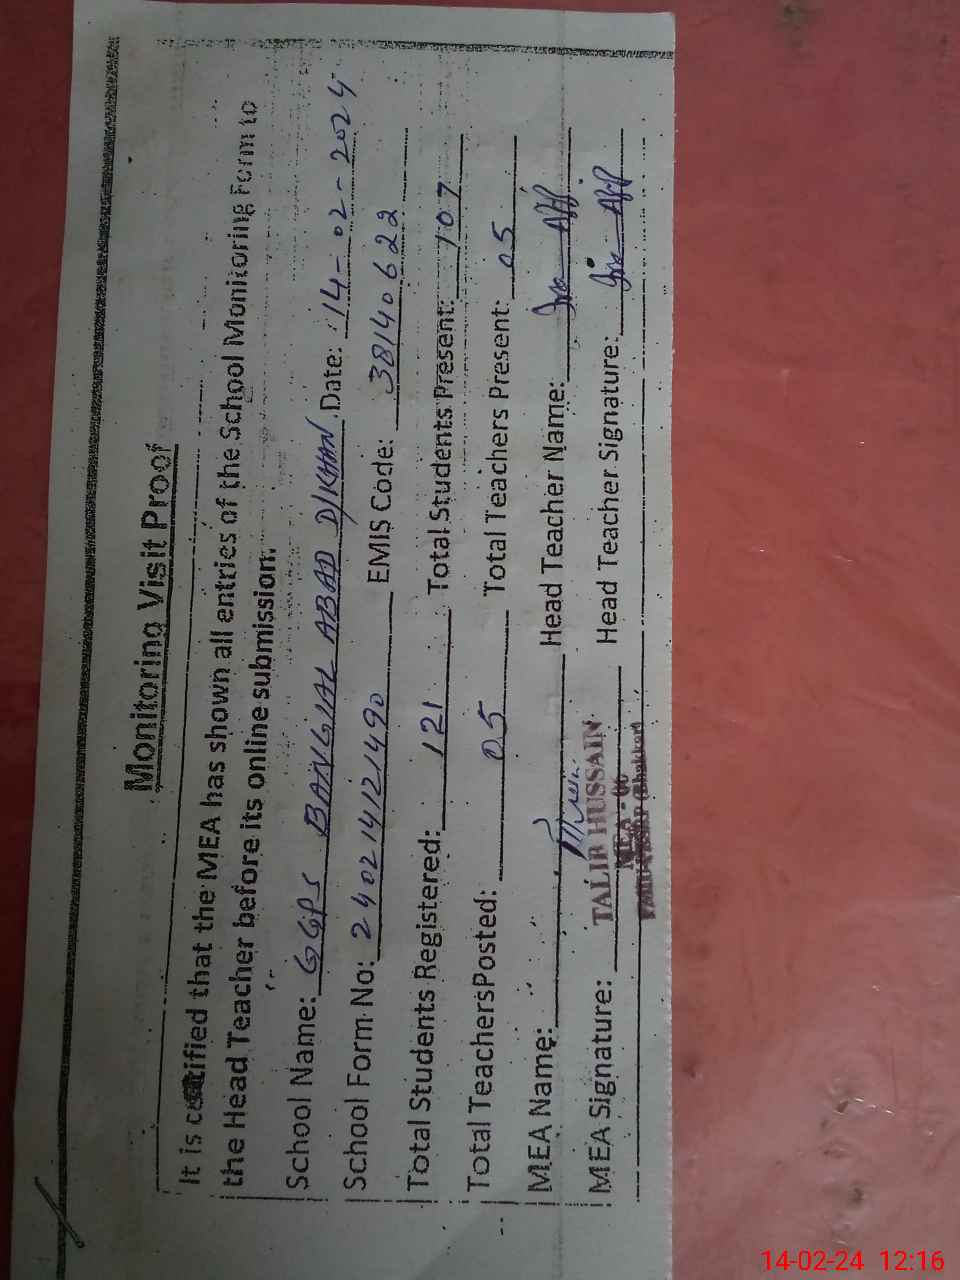 Monitoring Visit Proof
It is certified that the MEA has shown all entries of the School Monitoring Form to
the Head Teacher before its online submission.
School Name: GGPS BANGIAL ABAD D/KHAN Date: 14-02-2024
School Form No: 240214121490 EMIS Code: 38140622
Total Students Registered: 121 Total Students Present: 107
Total TeachersPosted: 05 Total Teachers Present: 05
MEA Name: Head Teacher Name:
MEA Signature: TALIB HUSSAIN Head Teacher Signature:
MEA - 06
(Bhakkar)
14-02-24 12:16